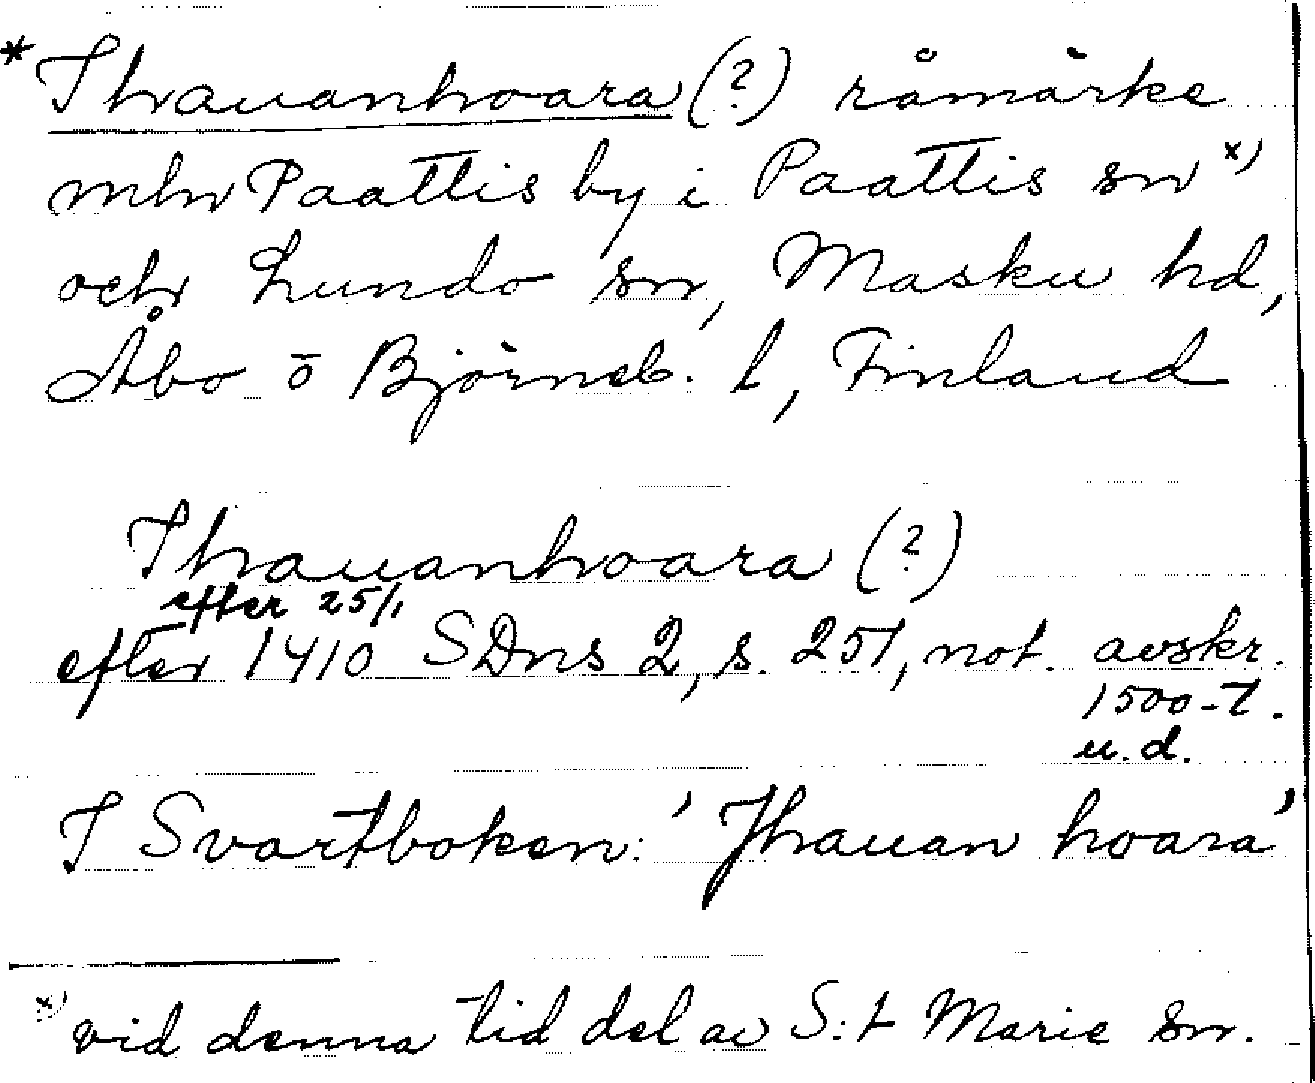 * Thrauanhoara (?) råmärke
mln Paattis by i Paattis sn x)
och Lundo sn, Masku hd,
Åbo o Björneb. l, Finland
Thrauanhoara (?)
efter 25/1
efter 1410 SDns 2, s. 251, not. avskr.
1500-t.
u.d.
I Svartboken: 'Jhrauan hoara'
x) vid denna tid del av S:t Marie sn.